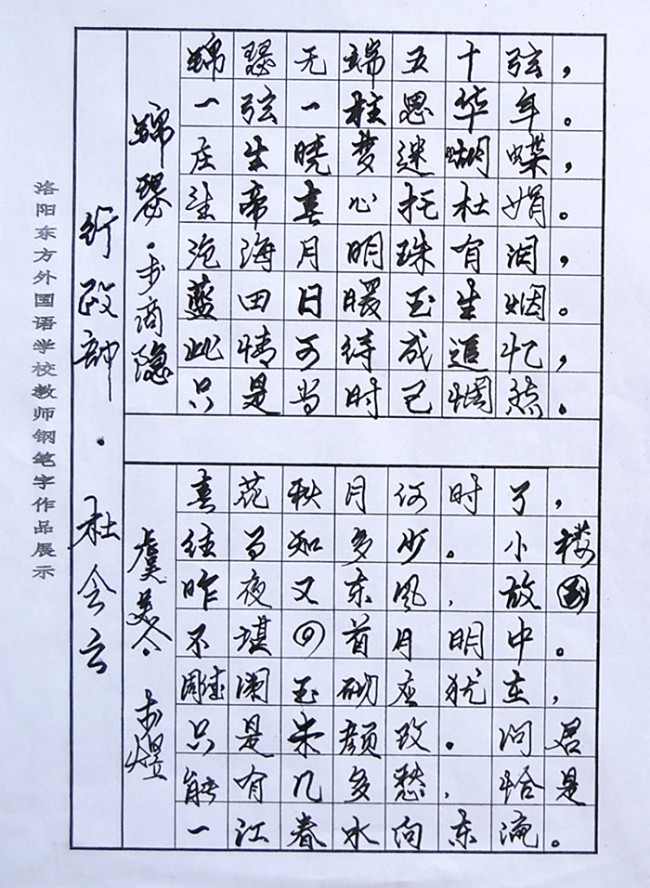 洛阳东方外国语学校教师钢笔字作品展示
行政部·杜会云
锦瑟·李商隐
锦瑟无端五十弦，
一弦一柱思华年。
庄生晓梦迷蝴蝶，
望帝春心托杜娟。
沧海月明珠有泪，
蓝田日暖玉生烟。
此情可待成追忆，
只是当时已惘然。
虞美人·李煜
春花秋月何时了，
往事知多少。小楼
昨夜又东风，故国
不堪回首月明中。
雕阑玉砌应犹在，
只是朱颜改。问君
能有几多愁，恰是
一江春水向东流。